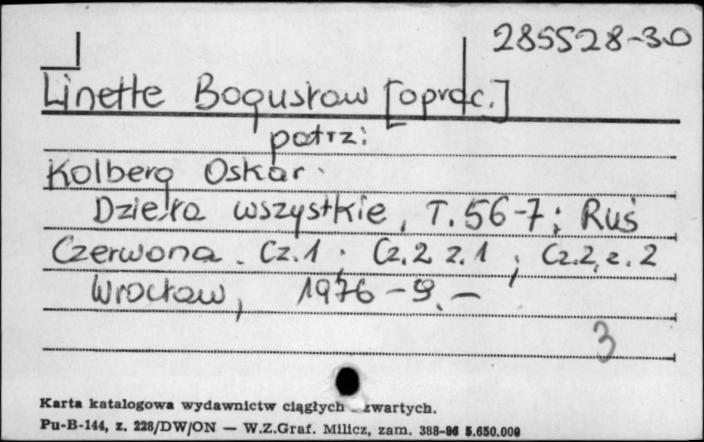 285528-30
Linette Bogusław [oprac.]
patrz:
Kolberg Oskar.
Dzieła wszystkie, T.56-7; Ruś
Czerwona. Cz.1; Cz.2 z.1; Cz.2, z.2
Wrocław, 1976-9. –
3
Karta katalogowa wydawnictw ciągłych zwartych.
Pu-B-144, z. 228/DW/ON — W.Z.Graf. Milicz, zam. 388-86 5.650.000